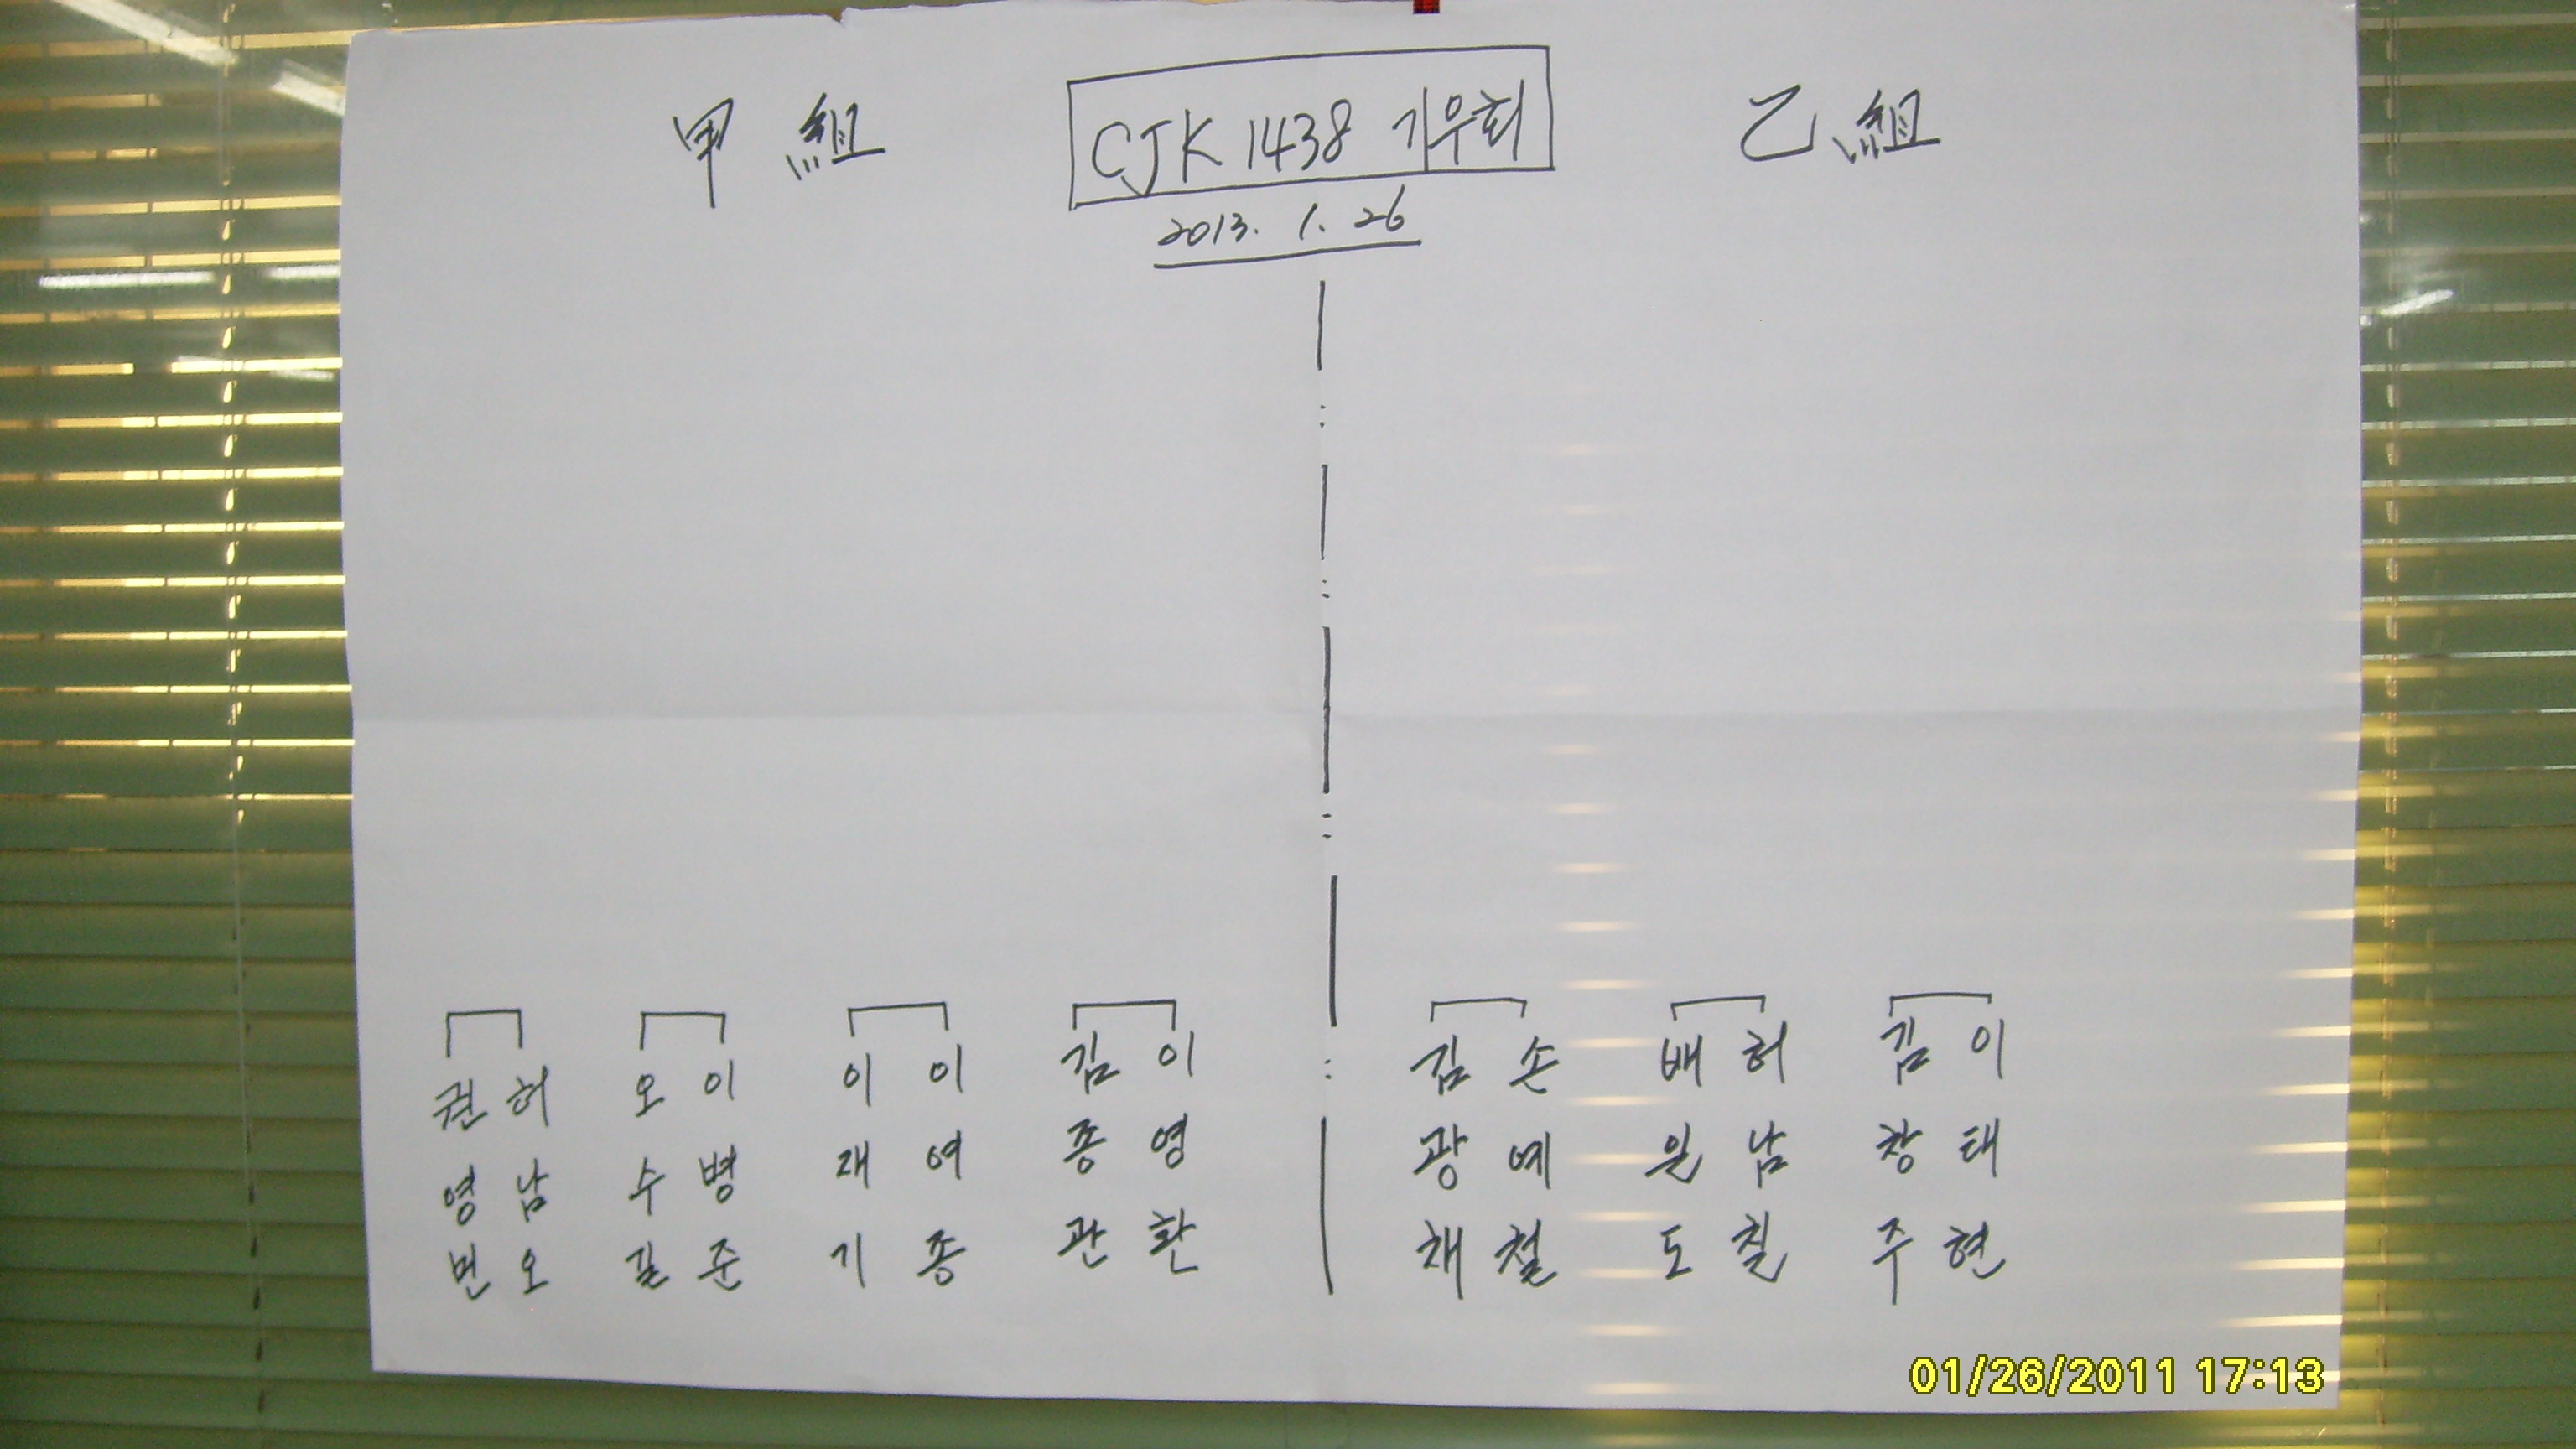 甲組
CJK 1438 기우회
乙組
2013. 1. 26
권영빈
허남오
오수길
이병준
이재기
이여종
김종관
이영환
김광채
손예철
배원도
허남칠
김창주
이태현
01/26/2011 17:13